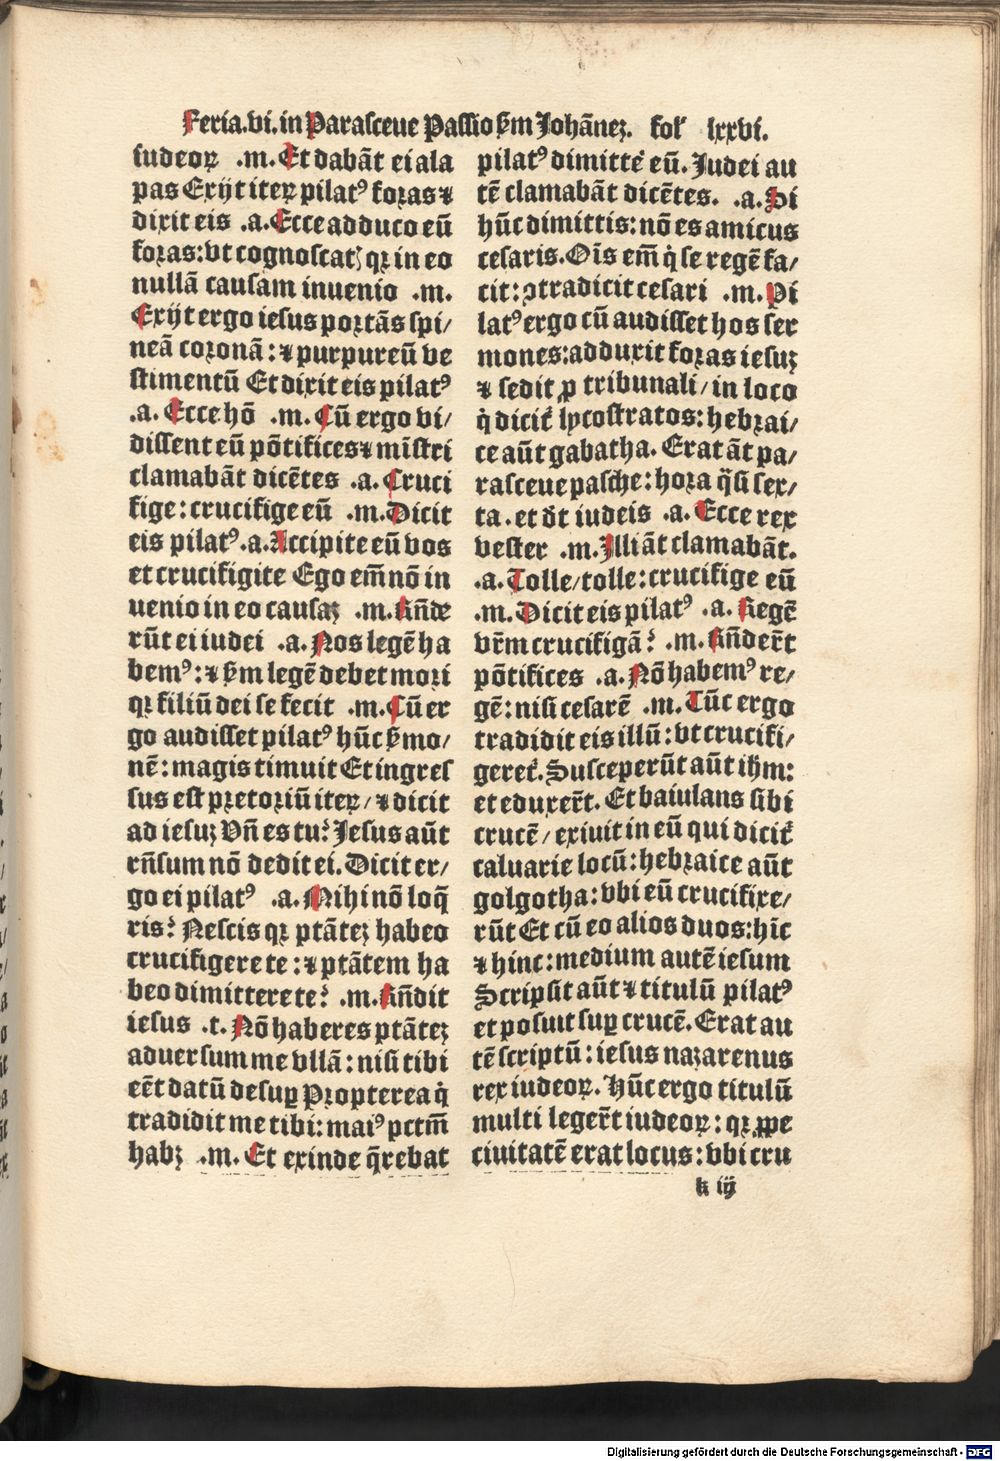 Feria.vi.in Parasceue Passio ẜm Johānez. fol' lxxvi.
iudeoꝝ .m. Et dabāt ei ala
pas Exijt iteꝝ pilatꝰ foꝛas ⁊
dixit eis .a. Ecce adduco eū
foꝛas: vt cognoscatꝫ qꝛ in eo
nullā causam inuenio .m.
Exijt ergo iesus poꝛtās spi/
neā coꝛonā: ⁊ purpureū ve
stimentū Et dixit eis pilatꝰ
.a. Ecce hō .m. Cū ergo vi/
dissent eū pōtifices ⁊ mīstri
clamabāt dicētes .a. Cruci
fige: crucifige eū .m. Dicit
eis pilatꝰ .a. Accipite eū vos
et crucifigite Ego em̄ nō in
uenio in eo causaꝫ .m. Rn̄de
rūt ei iudei .a. Nos legē ha
bemꝰ: ⁊ ẜm legē debet moꝛi
qꝛ filiū dei se fecit .m. Cū er
go audisset pilatꝰ hūc ẜmo/
nē: magis timuit Et ingres
sus est pꝛetoꝛiū iteꝝ/ ⁊ dicit
ad iesuꝫ Vn̄ es tu? Jesus aūt
rn̄sum nō dedit ei. Dicit er/
go ei pilatꝰ .a. Mihi nō loq̄
ris? Nescis qꝛ ptātēꝫ habeo
crucifigere te: ⁊ ptātem ha
beo dimittere te? .m. Rn̄dit
iesus .t. Nō haberes ptātēꝫ
aduersum me vllā: nisi tibi
eēt datū desuꝑ Pꝛopterea q̇
tradidit me tibi: maiꝰ pctm̄
habꝫ .m. Et exinde q̄rebat
pilatꝰ dimitte᷑ eū. Judei au
tē clamabāt dicētes. .a. Si
hūc dimittis: nō es amicus
cesaris. Oīs em̄ q̇ se regē fa/
cit: ꝯtradicit cesari .m. Pi
latꝰ ergo cū audisset hos ser
mones: adduxit foꝛas iesuꝫ
⁊ sedit ꝓ tribunali/ in loco
q̇ dicit᷑ lycostratos: hebꝛai/
ce aūt gabatha. Erat āt pa/
rasceue pasche: hoꝛa q̄si sex/
ta. et dt̄ iudeis .a. Ecce rex
vester .m. Illi āt clamabāt.
.a. Tolle/ tolle: crucifige eū
.m. Dicit eis pilatꝰ .a. Regē
vr̄m crucifigā? .m. Rn̄der̄t
pōtifices .a. Nō habemꝰ re/
gē: nisi cesarē .m. Tūc ergo
tradidit eis illū: vt crucifi/
geret᷑. Susceperūt aūt ihm̄:
et eduxer̄t. Et baiulans sibi
crucē/ exiuit in eū qui dicit᷑
caluarie locū: hebꝛaice aūt
golgotha: vbi eū crucifixe/
rūt Et cū eo alios duos: hīc
⁊ hinc: medium autē iesum
Scripsit aūt ⁊ titulū pilatꝰ
et posuit suꝑ crucē. Erat au
tē scriptū: iesus nazarenus
rex iudeoꝝ. Hūc ergo titulū
multi leger̄t iudeoꝝ: qꝛ ꝓpe
ciuitatē erat locus: vbi cru
k iij
Digitalisierung gefördert durch die Deutsche Forschungsgemeinschaft - DFG